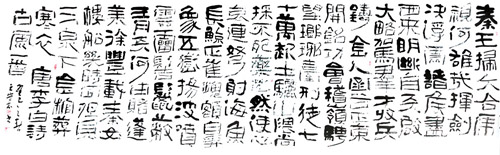 秦王掃六合虎
視何雄哉揮劍
決浮雲諸侯盡
西來明斷自天啟
大略駕群才收兵
鑄金人函谷正東
開銘功會稽嶺騁
望瑯琊臺刑徒七
十萬起土驪山隈尚
採不死藥茫然使心
哀連弩射海魚
長鯨正崔嵬額鼻
象五嶽揚波噴
雲雷鬐鬣蔽
青天何由睹蓬
萊徐市載秦女
樓船幾時回但見
三泉下金棺葬
寒灰 唐李白詩
古風首